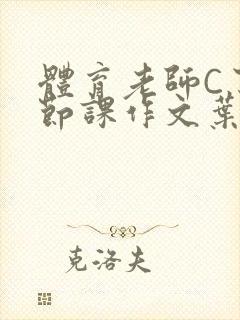 體育老師C
節課作文葉
克洛夫